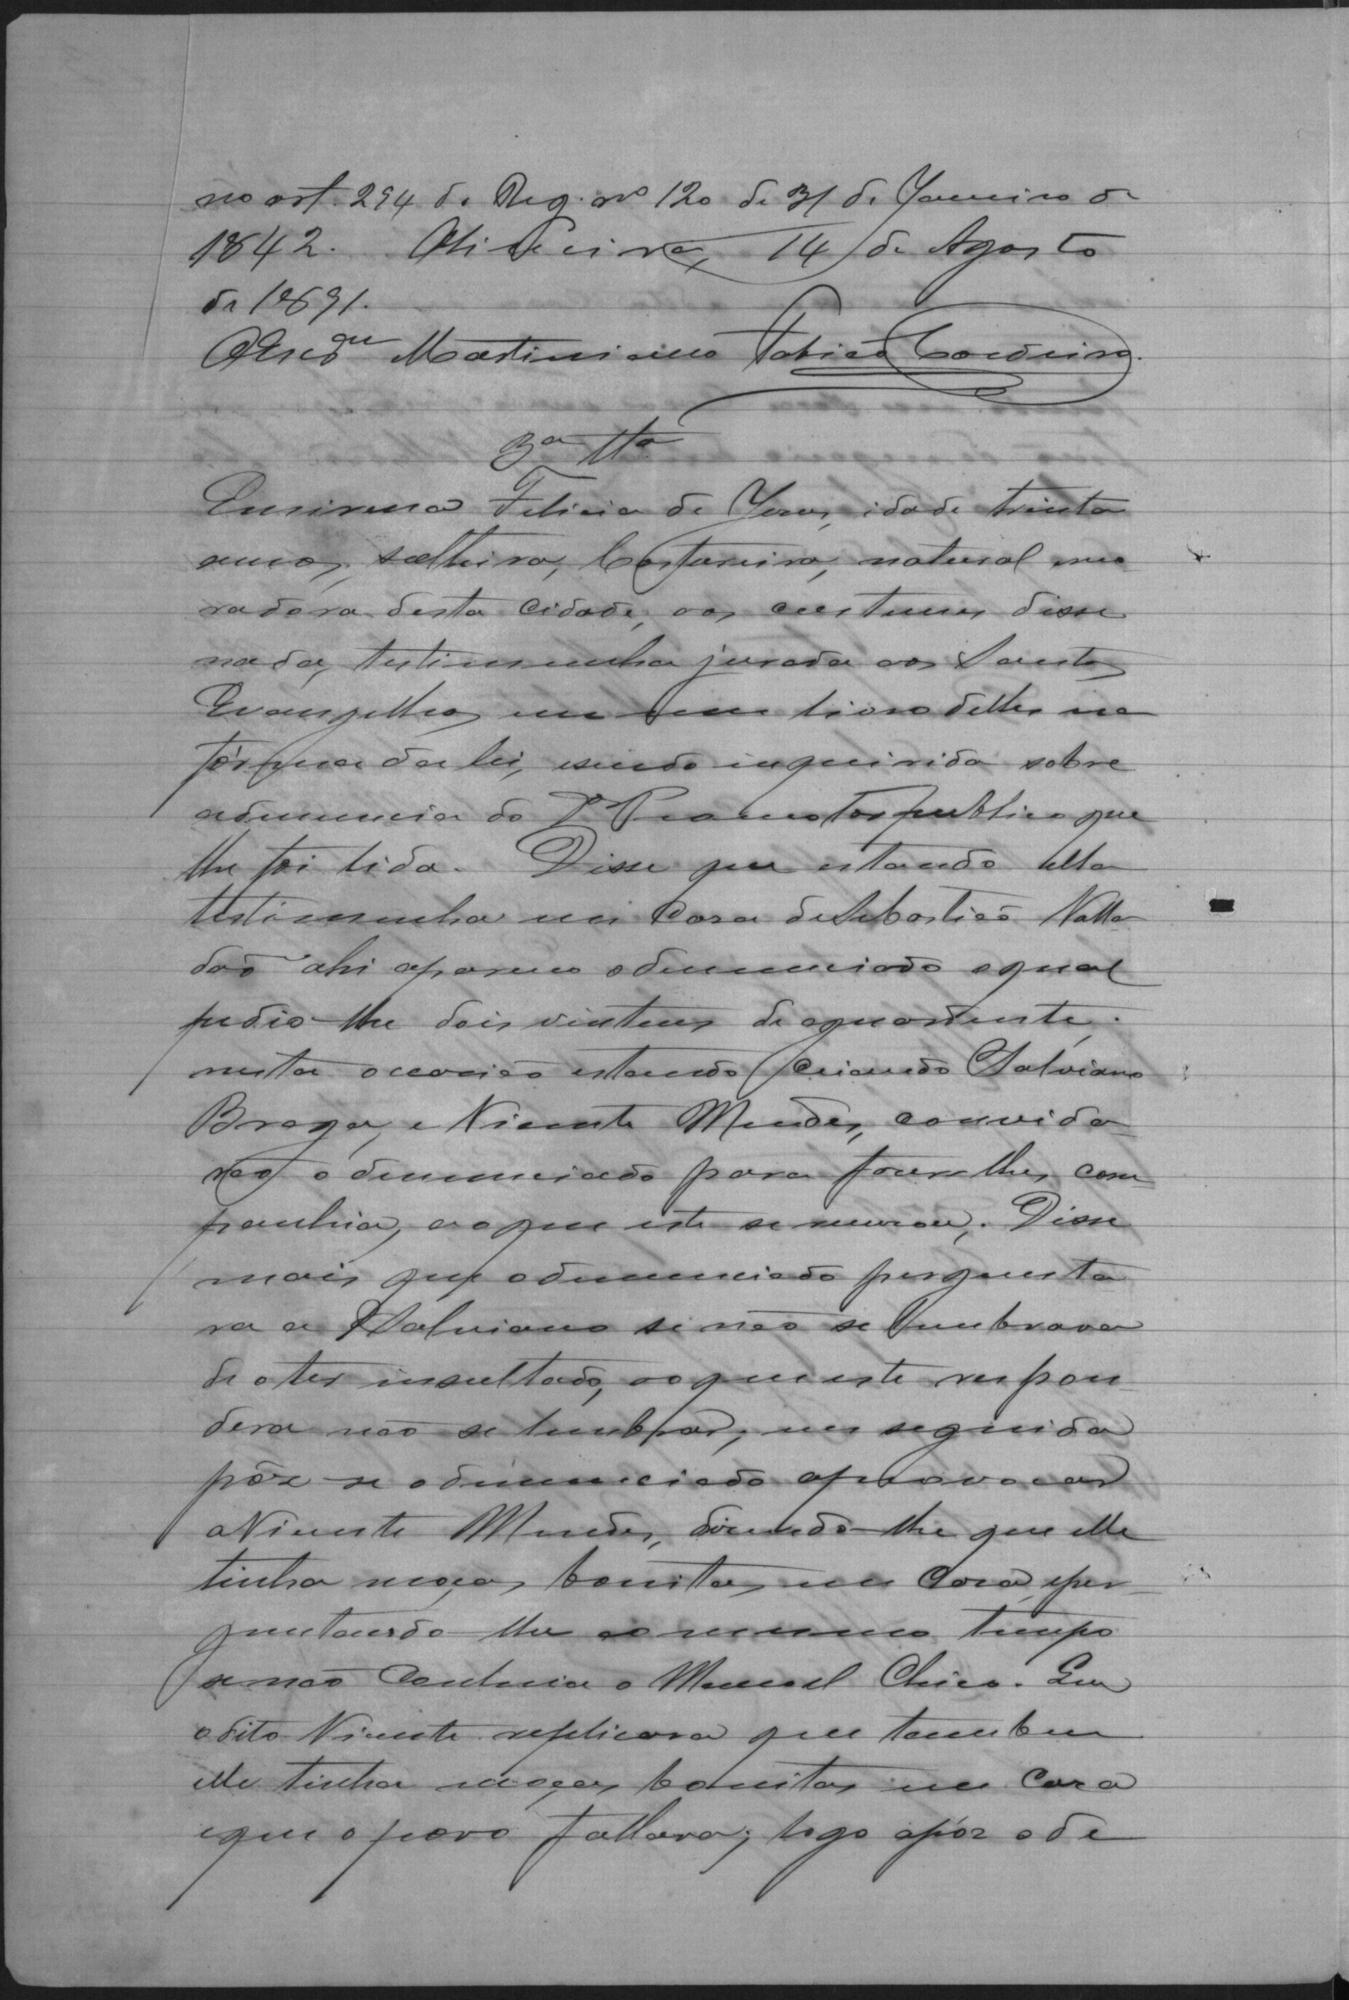 no art. 294 do Reg. nº 120 de 31 de Janeiro de
1842. Oliveira, 14 de Agosto
de 1891.
O Escr Martiniano Fabião Cordeiro.
3ª tta
Felicia de Jesus, idade trinta
annos, solteira, Costureira, natural mo
radora desta cidade, aos costumes disse
nada, testimunha jurada aos Santos
Evangelhos em um livro delles na
fórma da lei, e sendo inquirida sobre
a denuncia do Dr Promotor publico que
lhe foi lida. Disse que estando ella
testimunha em Casa de Sebastião Valla
dão ahi apareceo o denunciado o qual
pedio-lhe dois vintens de aguardente,
nesta occasião estando Salviano
Braga, e Vicente Mendes, convida
rão o denunciado para fazer lhes com
panhia, ao que este se recusou. Disse
mais que o denunciado pergunta
ra a Salviano si não se lembrava
de o ter insultado, ao que este respon
dera não se lembrar, em seguida
pôz-se o denunciado a provocar
a Vicente Mendes, dizendo-lhe que elle
tinha moças bonitas em Casa, e per
guntando-lhe ao mesmo tempo
se não Conhecia o Manoel Chico. Que
o dito Vicente replicara que tambem
elle tinha moças bonitas em Casa
e que o povo fallava; logo apóz o de